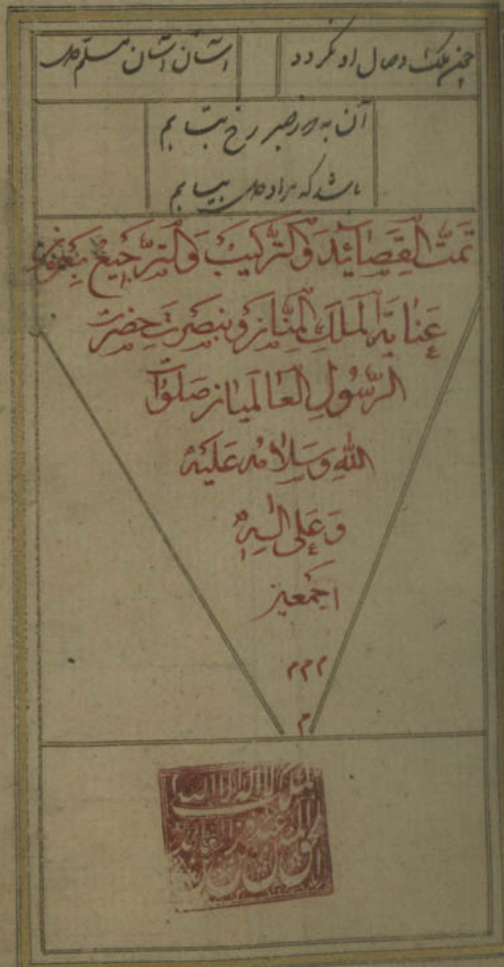 چون ملک وصال او نکردد
آسان آسان مسلم دل
آن به که ز صبر رخ نتابم
باشد که مراد دل بیابم
تمت القصائد والترکیب والترجیع بعون
عنایة الملک المنان وبنصرت حضرت
الرسول العالمیان صلوات
الله وسلامه علیه
وعلی اله
اجمعین
۲۲۲
م